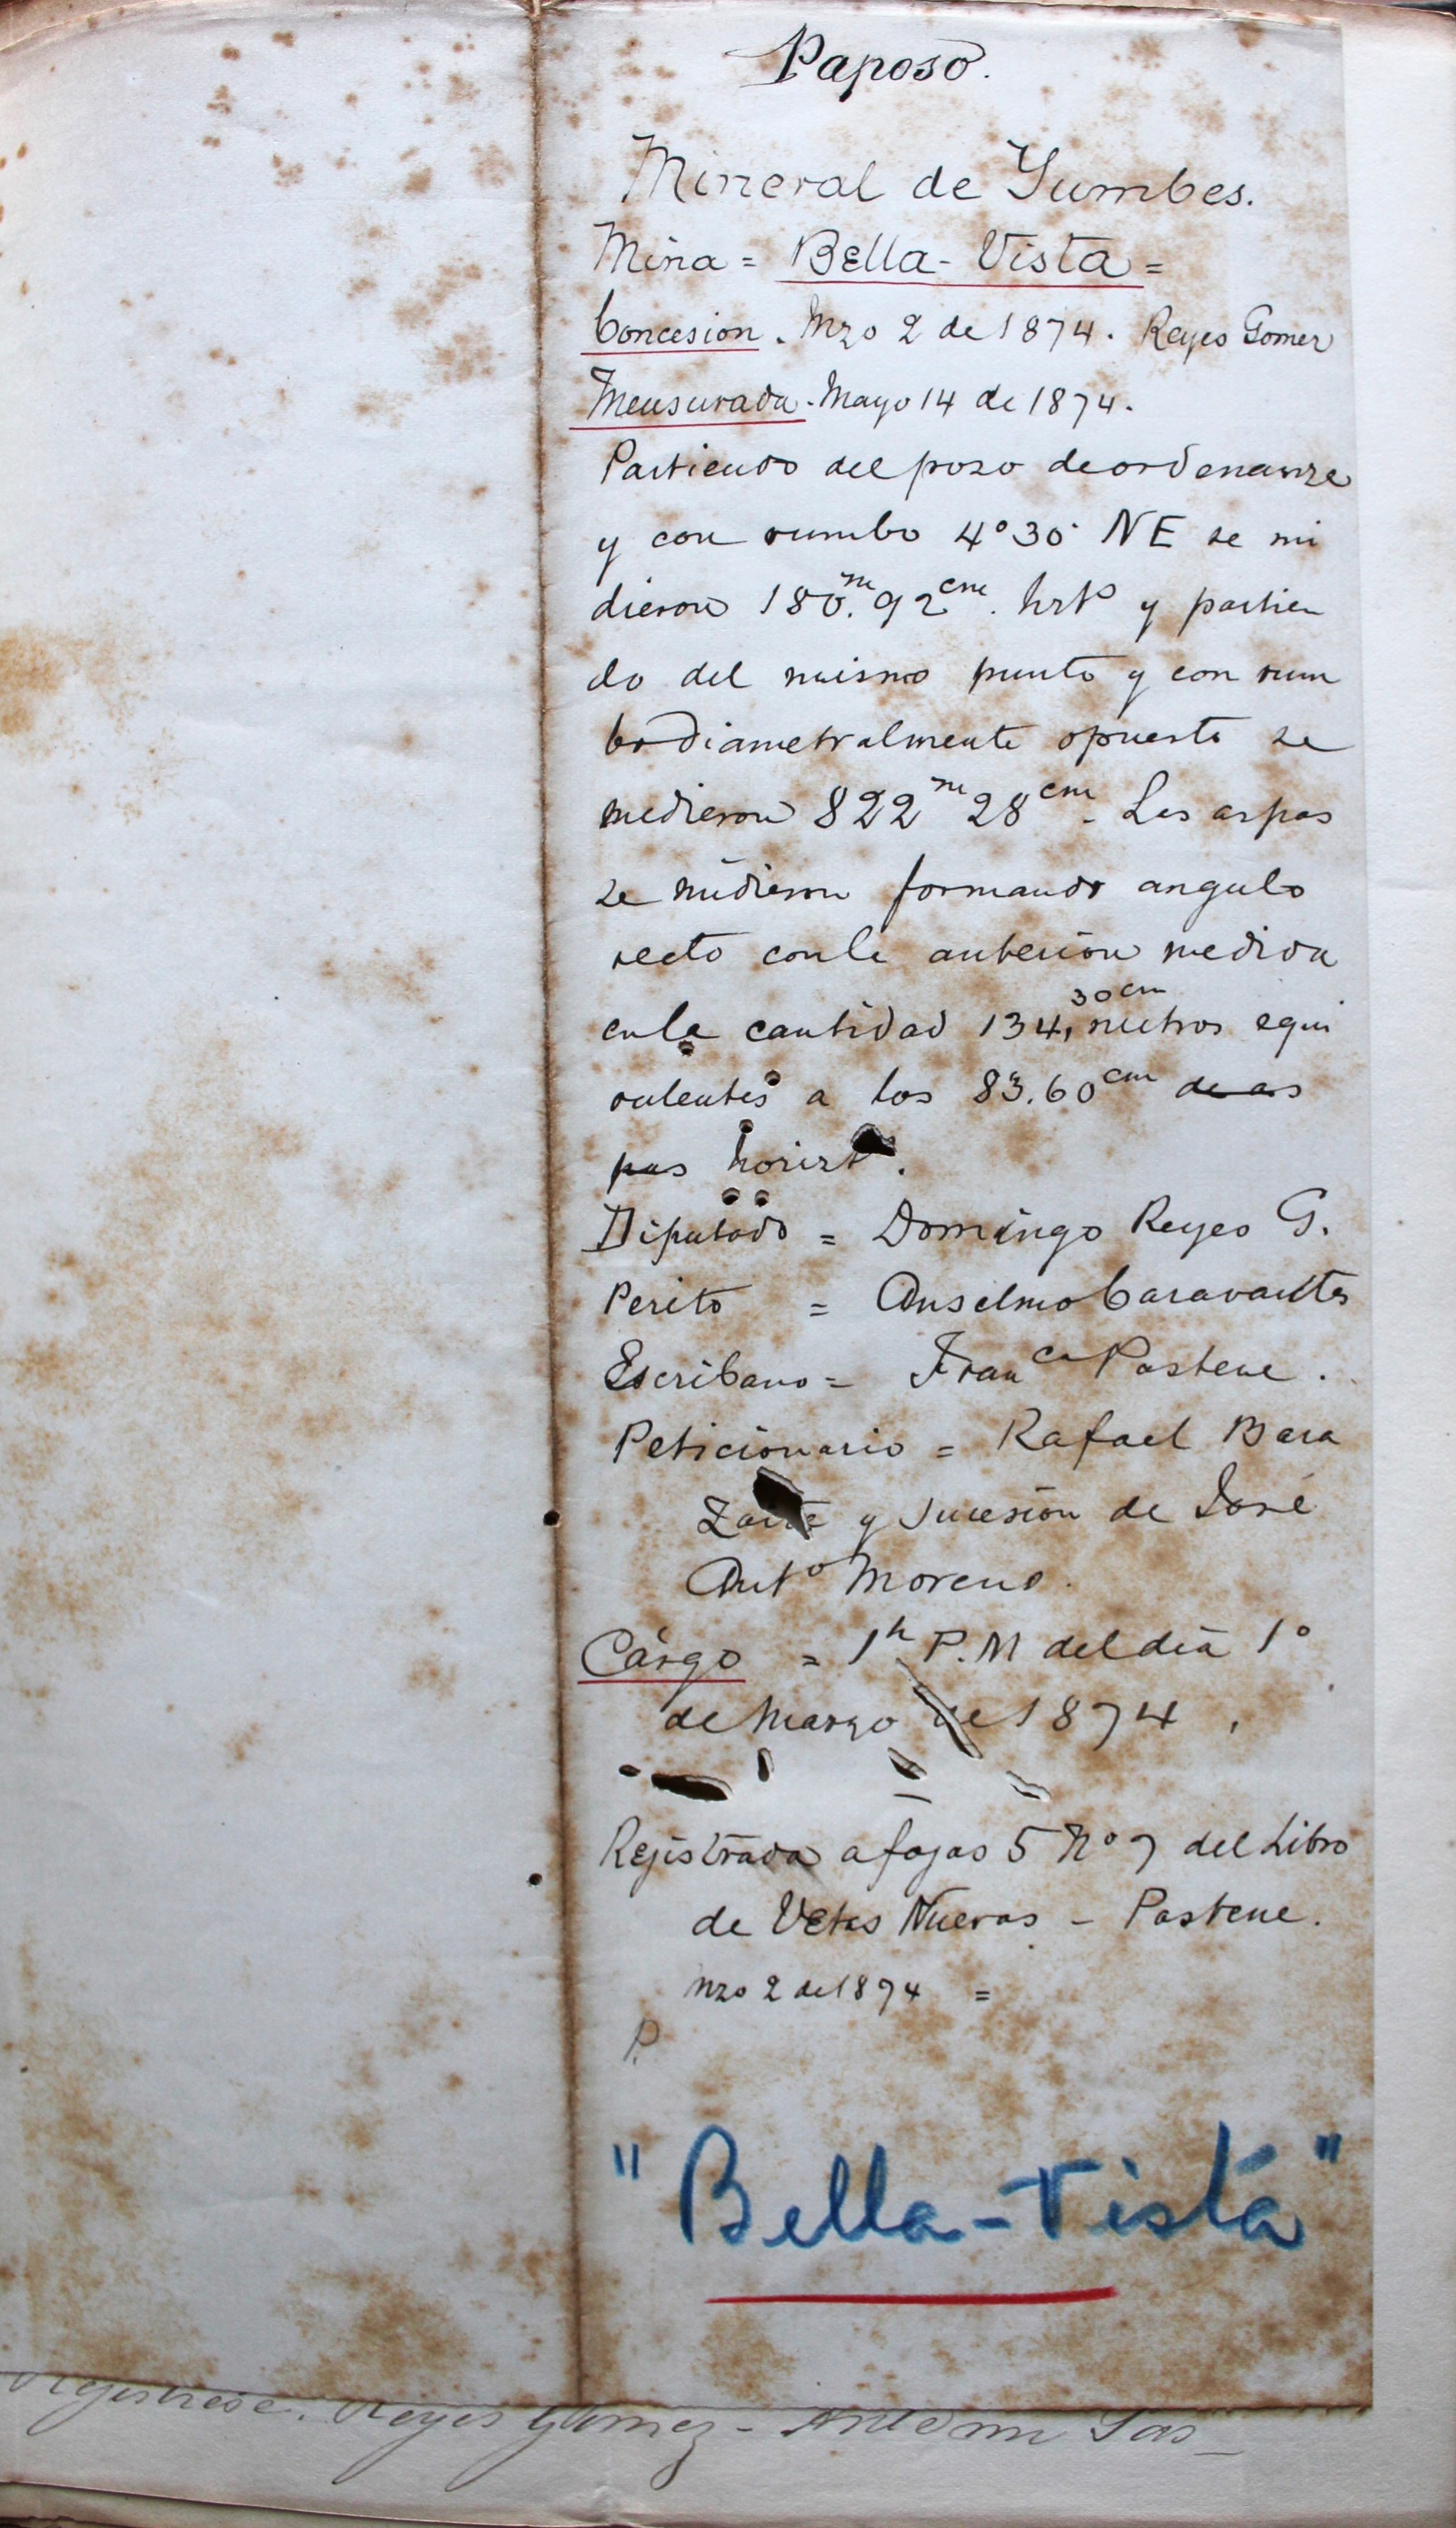 Paposo.
Mineral de Yumbes.
Mina = Bella-Vista =
Concesion. Mzo 2 de 1874. Reyes Gomez
Mensurada. Mayo 14 de 1874.
Partiendo del pozo de ordenanza
y con rumbo 4°30' NE se mi
dieron 180.m 92cm. hztl y partien
do del mismo punto y con rum
bo diametralmente opuesto se
midieron 822m 28cm. Las aspas
se midieron formando angulo
recto con la anterior medida
en la cantidad 134, 30cm metros equi
valentes a los 83.60cm de as
pas horizt.
Diputado = Domingo Reyes G.
Perito = Anselmo Caravantes
Escribano = Franco Pastene.
Peticionario = Rafael Bara
zarte y sucesion de José
Anto Moreno.
Cárgo = 1h P.M del dia 1°
de Marzo de 1874.
Rejistrada a fojas 5 No 7 del Libro
de Vetas Nuevas - Pastene.
Mzo 2 de 1874 =
P.
"Bella-Vista"
Registrese. Reyes Gomez - Ante mi Pas_